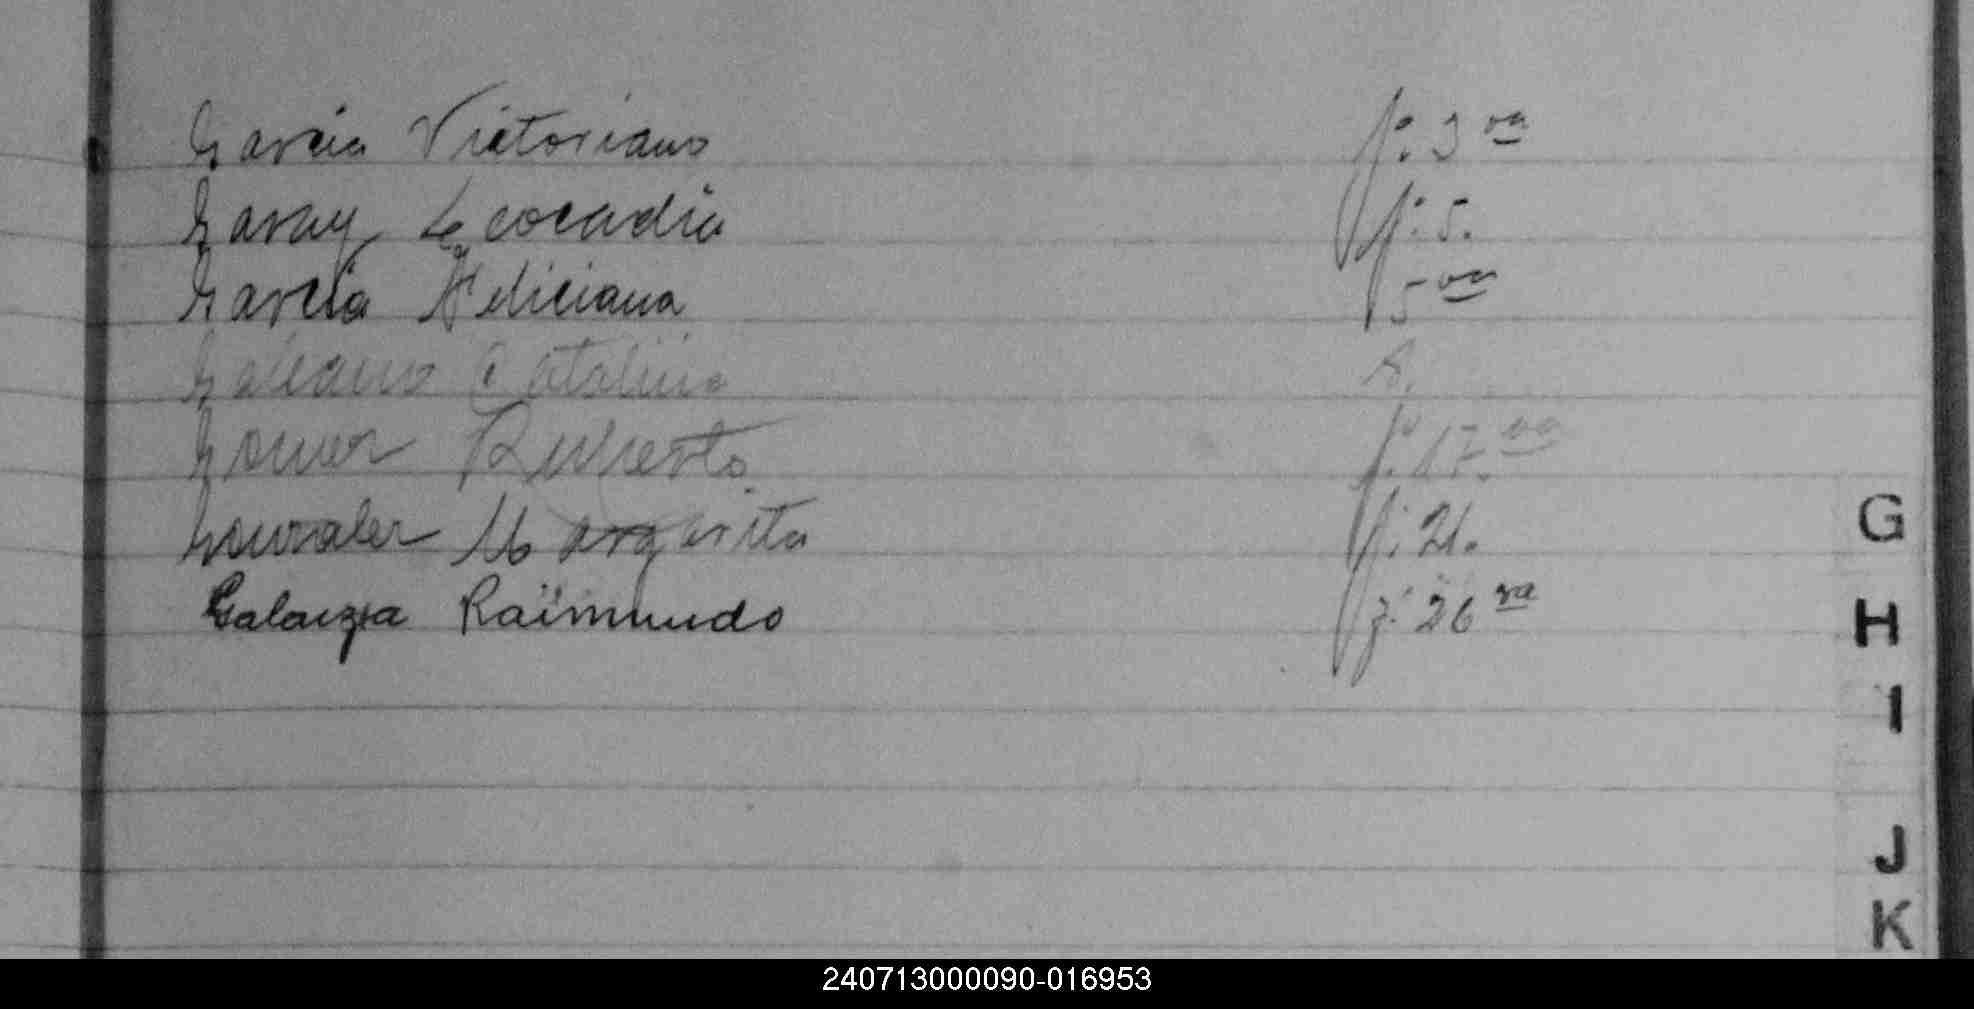 Garcia Victoriano f. 3 va
Garay Leocadia f. 5.
Garcia Feliciana 5 va
Galeano Catalina 8.
Gomez Ruperto f. 17. va
Gonzalez Margarita f. 21.
Galarza Raimundo f. 26 va
G
H
I
J
K
240713000090-016953